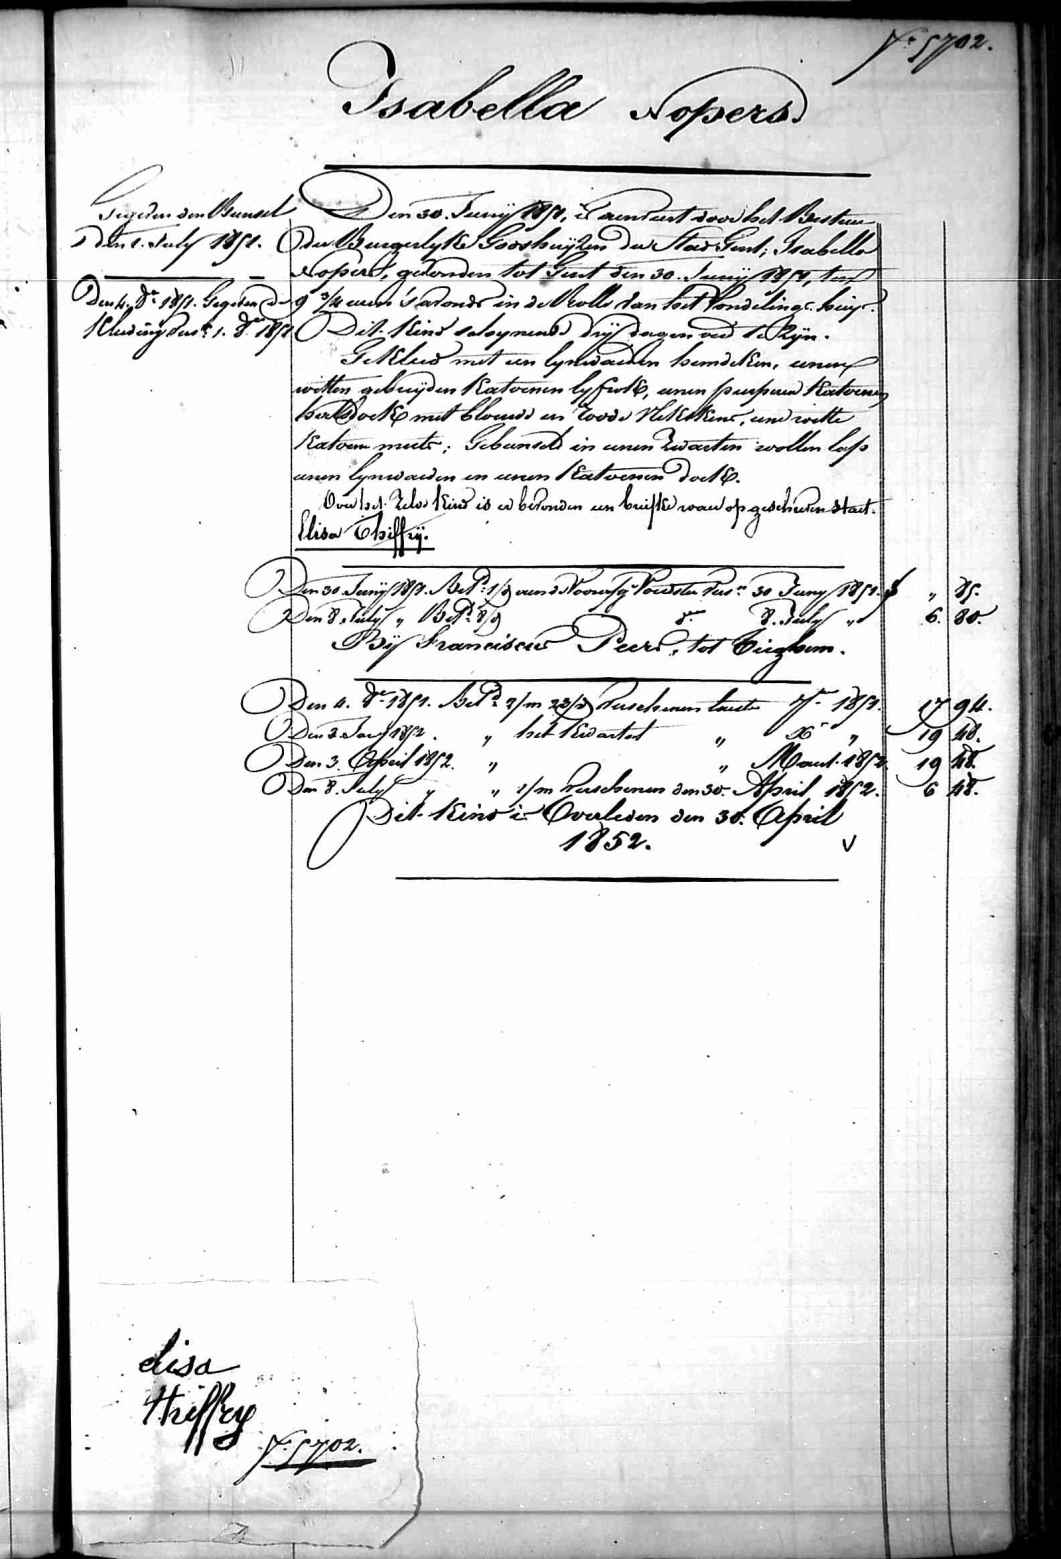 N.° 5702.
Isabella Nopers
Gegeven den Bunsel
den 1. July 1851.
Den 4. 8.re 1851. Gegeven de
Kleeding vers. 1. 8.re 1851
Den 30. Junij 1851, is aenveert door het Bestuer
der Burgerlyke Godshuijzen der Stad Gent; Isabella
Nopers, gevonden tot Gent den 30. Junij 1851, ten
9 3/4 uren 's avonds in de Rolle van het Vondelings huijs.
Dit kind scheynende drij dagen oud te Zijn.
Gekleed met een lynwaeden hemdeken, eenen
witten gebreijden Katoenen lyfrok, eenen purperen Katoenen
halsdoek met blauwe en roode blekskens, eene witte
Katoene muts; Gebunseld in eenen Zwarten wollen lap
eenen lynwaeden en eenen Katoenen doek.
Over het Zelve Kind is er bevonden een briefke waer op geschreven staet.
Elisa Thiffrij.
Den 30 Junij 1851. Bet.d 1/9 aen de Voorsz. Voedster vers.n 30 Juny 1851. f „ 85.
Den 8. July „ Bet.d 8/9 d.° 8. July „ 6. 80.
Bij Franciscus Peers, tot Tieghem.
Den 4. 8.re 1851. Bet.d 2/m 23/d verschenen laest 7.re 1851. 17 94.
Den 3. Jan.y 1852. „ het Kwartael „ X.re „ 19 48.
Den 3. April 1852. „ „ Maart 1852. 19 48.
Den 8. July „ „ 1/m verschenen den 30. April 1852. 6 48.
Dit Kind is Overleden den 30. April
1852. v
elisa
thiffry
N.° 5702.